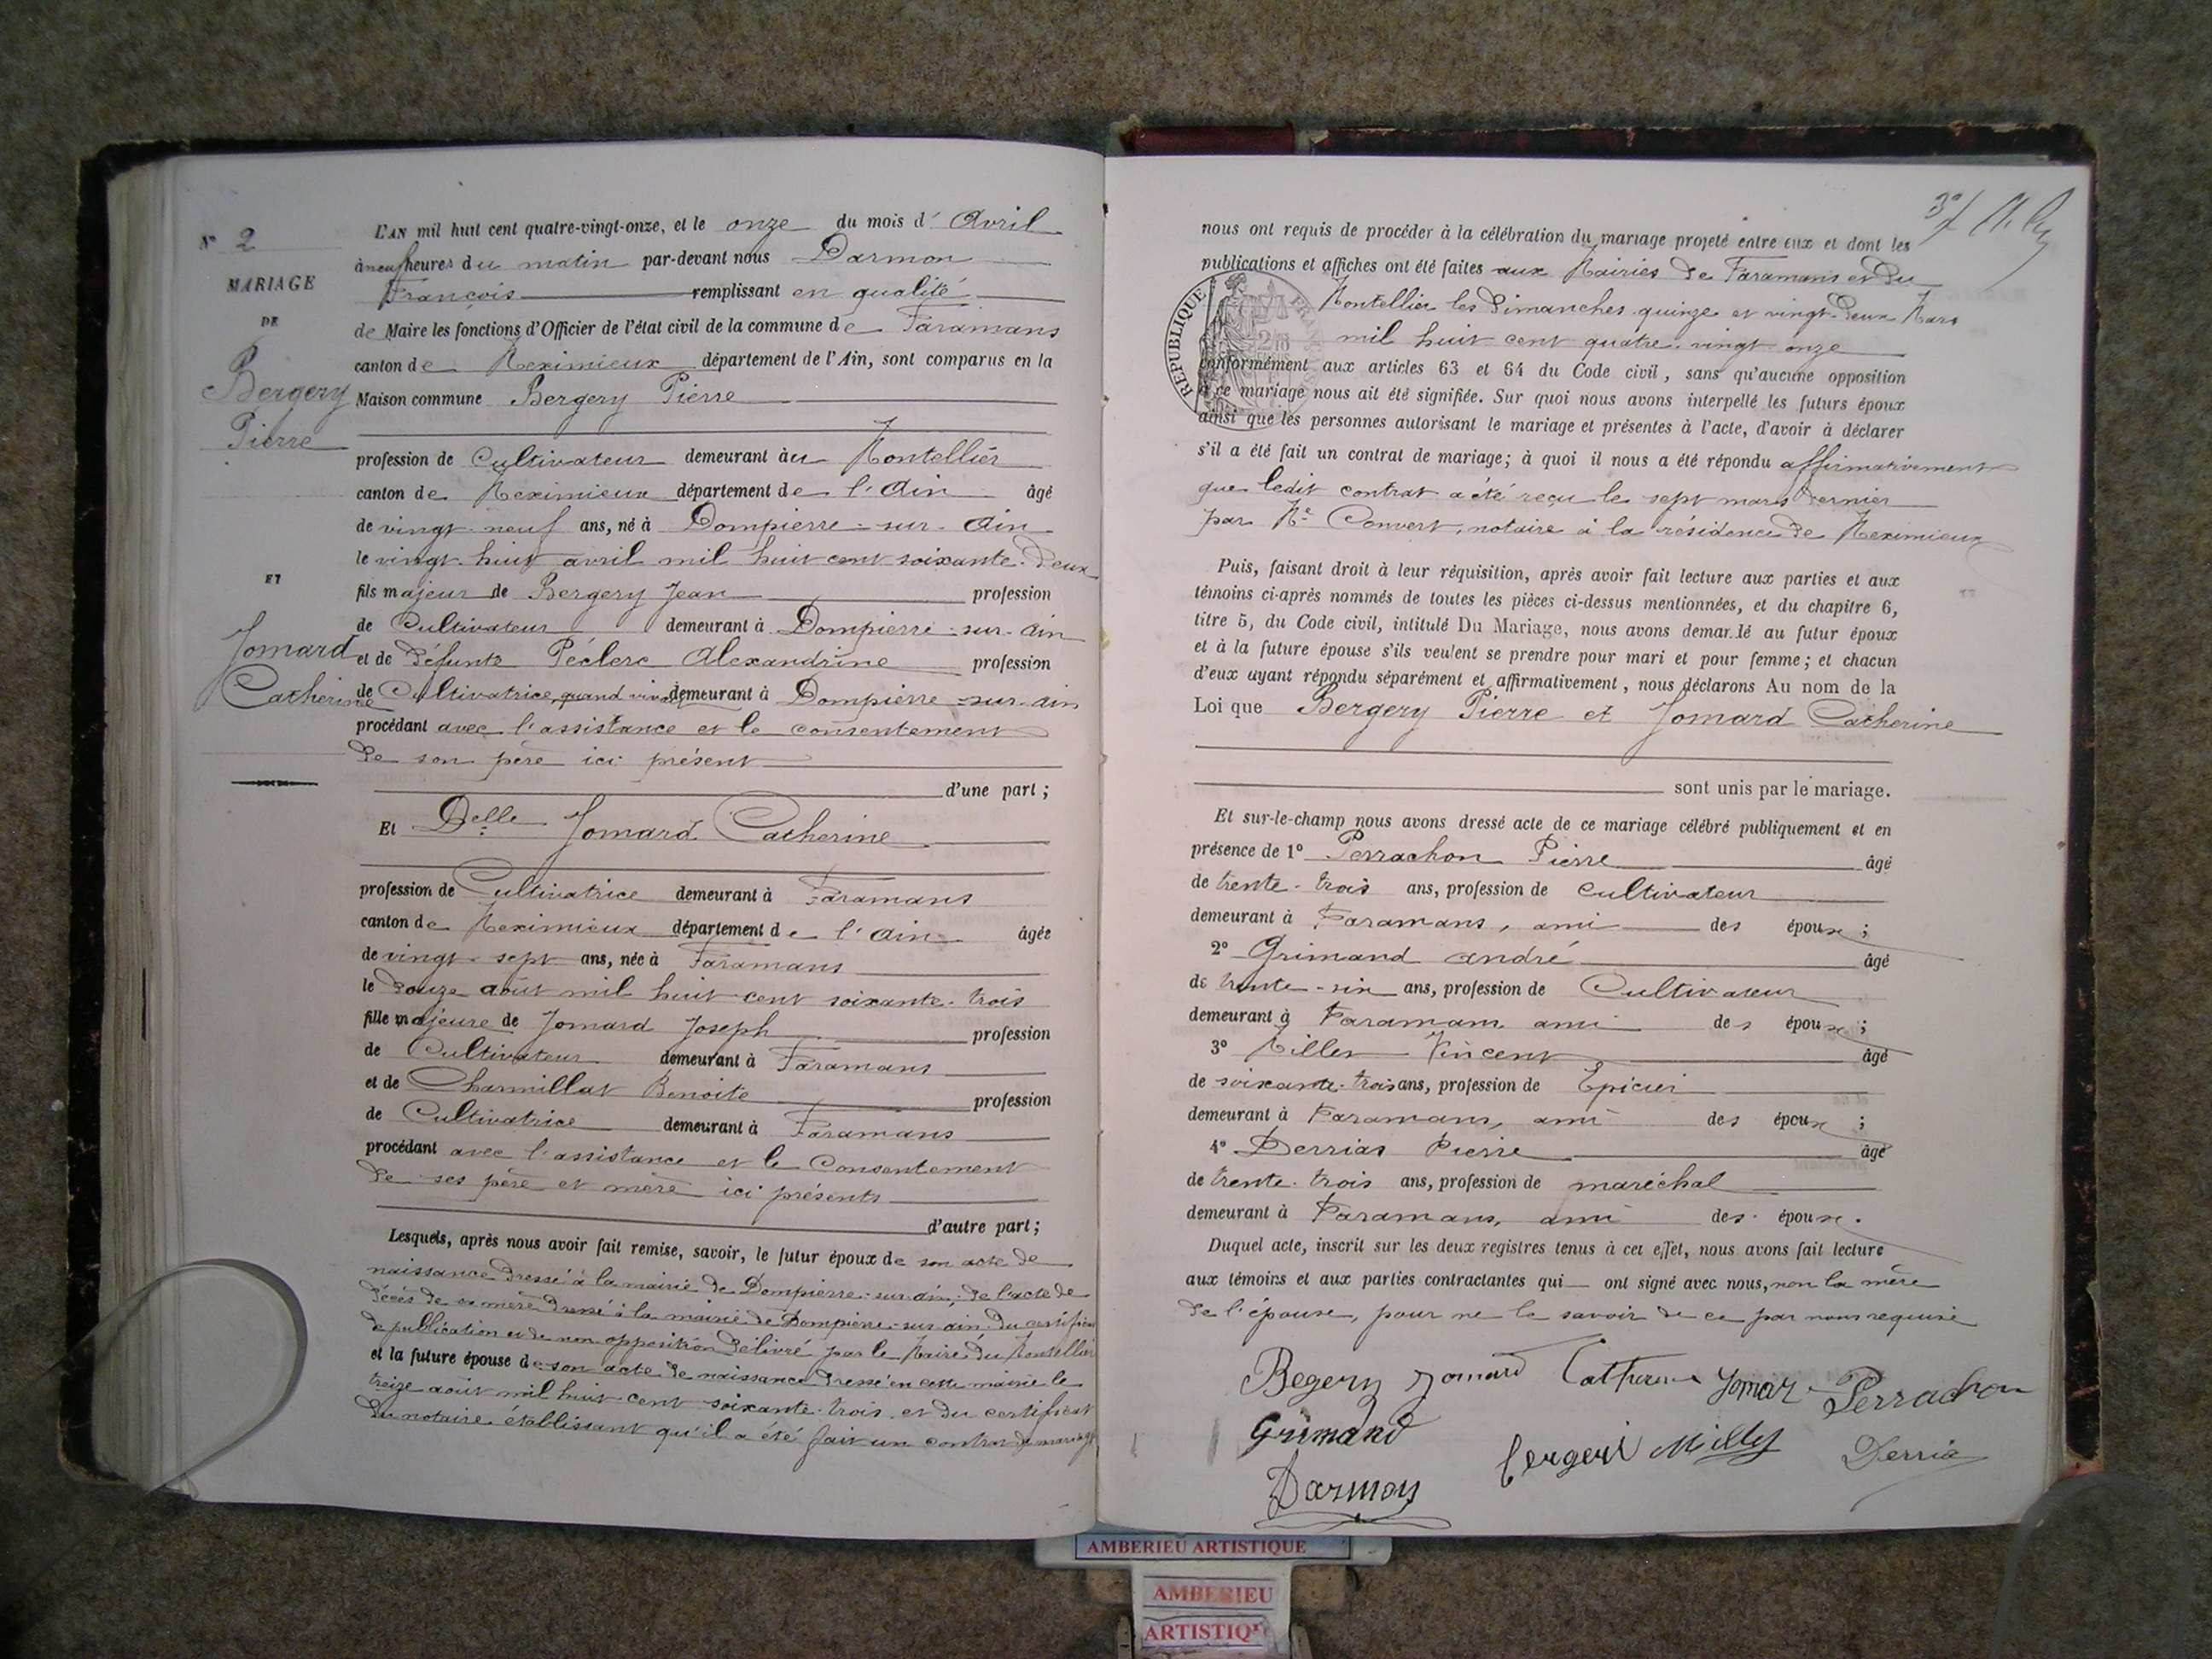 N° 2
MARIAGE
DE
Bergery
Pierre
ET
Jomard
Catherine
L'AN mil huit cent quatre-vingt-onze, et le onze du mois d' Avril
à neuf heures du matin par-devant nous Darmon
François remplissant en qualité
de Maire les fonctions d'Officier de l'état civil de la commune de Faramans
canton de Meximieux département de l'Ain, sont comparus en la
Maison commune Bergery Pierre
profession de Cultivateur demeurant au Montellier
canton de Meximieux département de l'Ain âgé
de vingt-neuf ans, né à Dompierre-sur-Ain
le vingt-huit avril mil huit cent soixante-deux
fils majeur de Bergery Jean profession
de Cultivateur demeurant à Dompierre-sur-ain
et de défunte Péclerc Alexandrine profession
de Cultivatrice, quand vivait demeurant à Dompierre-sur-ain
procédant avec l'assistance et le consentement
de son père ici présent
d'une part;
Et Delle Jomard Catherine
profession de Cultivatrice demeurant à Faramans
canton de Meximieux département de l'Ain âgée
de vingt-sept ans, née à Faramans
le douze août mil huit cent soixante-trois
fille majeure de Jomard Joseph profession
de Cultivateur demeurant à Faramans
et de Charmillat Benoite profession
de Cultivatrice demeurant à Faramans
procédant avec l'assistance et le consentement
de ses père et mère ici présents
d'autre part;
Lesquels, après nous avoir fait remise, savoir, le futur époux de son acte de
naissance dressé à la mairie de Dompierre-sur-ain; de l'acte de
décès de sa mère dressé à la mairie de Dompierre-sur-ain, du certificat
de publication et de non opposition délivré par le Maire du Montellier
et la future épouse de son acte de naissance dressé en cette mairie le
treize août mil huit cent soixante-trois et du certificat
du notaire établissant qu'il a été fait un contrat de mariage
3e
nous ont requis de procéder à la célébration du mariage projeté entre eux et dont les
publications et affiches ont été faites aux Mairies de Faramans et du
Montellier les Dimanches quinze et vingt-deux Mars
mil huit cent quatre-vingt-onze
REPUBLIQUE
conformément aux articles 63 et 64 du Code civil, sans qu'aucune opposition
à ce mariage nous ait été signifiée. Sur quoi nous avons interpellé les futurs époux
ainsi que les personnes autorisant le mariage et présentes à l'acte, d'avoir à déclarer
s'il a été fait un contrat de mariage; à quoi il nous a été répondu affirmativement
que ledit contrat a été reçu le sept mars dernier
par Me Convert, notaire à la résidence de Meximieux
Puis, faisant droit à leur réquisition, après avoir fait lecture aux parties et aux
témoins ci-après nommés de toutes les pièces ci-dessus mentionnées, et du chapitre 6,
titre 5, du Code civil, intitulé Du Mariage, nous avons demandé au futur époux
et à la future épouse s'ils veulent se prendre pour mari et pour femme; et chacun
d'eux ayant répondu séparément et affirmativement, nous déclarons Au nom de la
Loi que Bergery Pierre et Jomard Catherine
sont unis par le mariage.
Et sur-le-champ nous avons dressé acte de ce mariage célébré publiquement et en
présence de 1° Perrachon Pierre âgé
de trente-trois ans, profession de cultivateur
demeurant à Faramans, ami des époux;
2° Grimand André âgé
de trente-six ans, profession de Cultivateur
demeurant à Faramans ami des époux;
3° Milley Vincent âgé
de soixante-trois ans, profession de Epicier
demeurant à Faramans, ami des époux;
4° Derrias Pierre âgé
de trente-trois ans, profession de maréchal
demeurant à Faramans, ami des époux.
Duquel acte, inscrit sur les deux registres tenus à cet effet, nous avons fait lecture
aux témoins et aux parties contractantes qui ont signé avec nous, non la mère
de l'épouse, pour ne le savoir de ce par nous requise
Begery Jomard Catherine Jomar Perrachon
Grimand Bergeri Milley Derria
Darmon
AMBERIEU ARTISTIQUE
AMBERIEU
ARTISTIQ